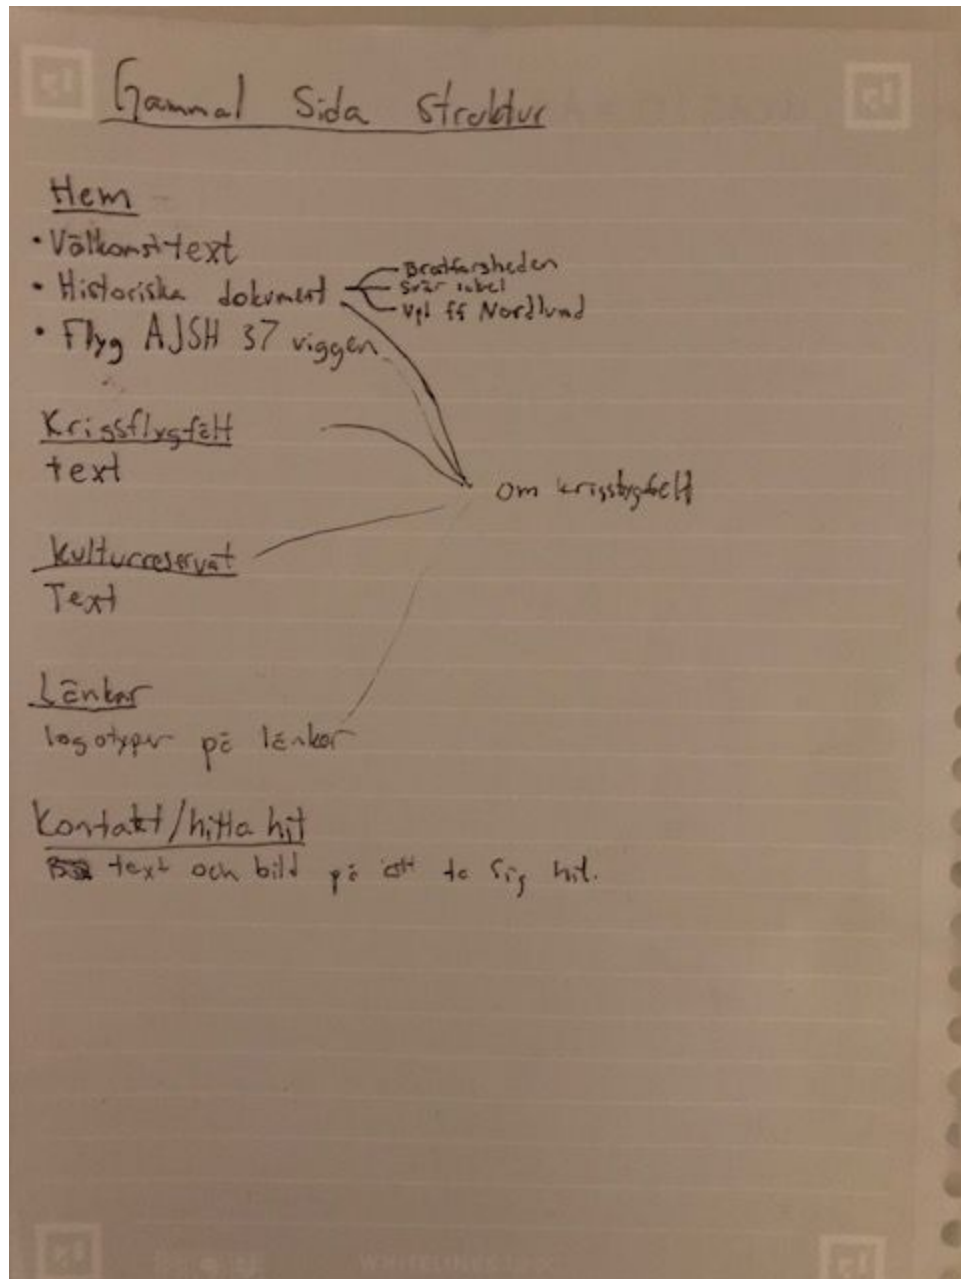 Gammal Sida Struktur
Hem
• Välkomsttext
• Historiska dokument
Brattforsheden
Svår
Vpl ff Nordlund
• Flyg AJSH 37 viggen
Krigsflygfält
text
om krigsflygfält
Kulturreservat
Text
Länkar
logotyper på länkar
Kontakt/hitta hit
text och bild på att ta sig hit.
WHITELINES